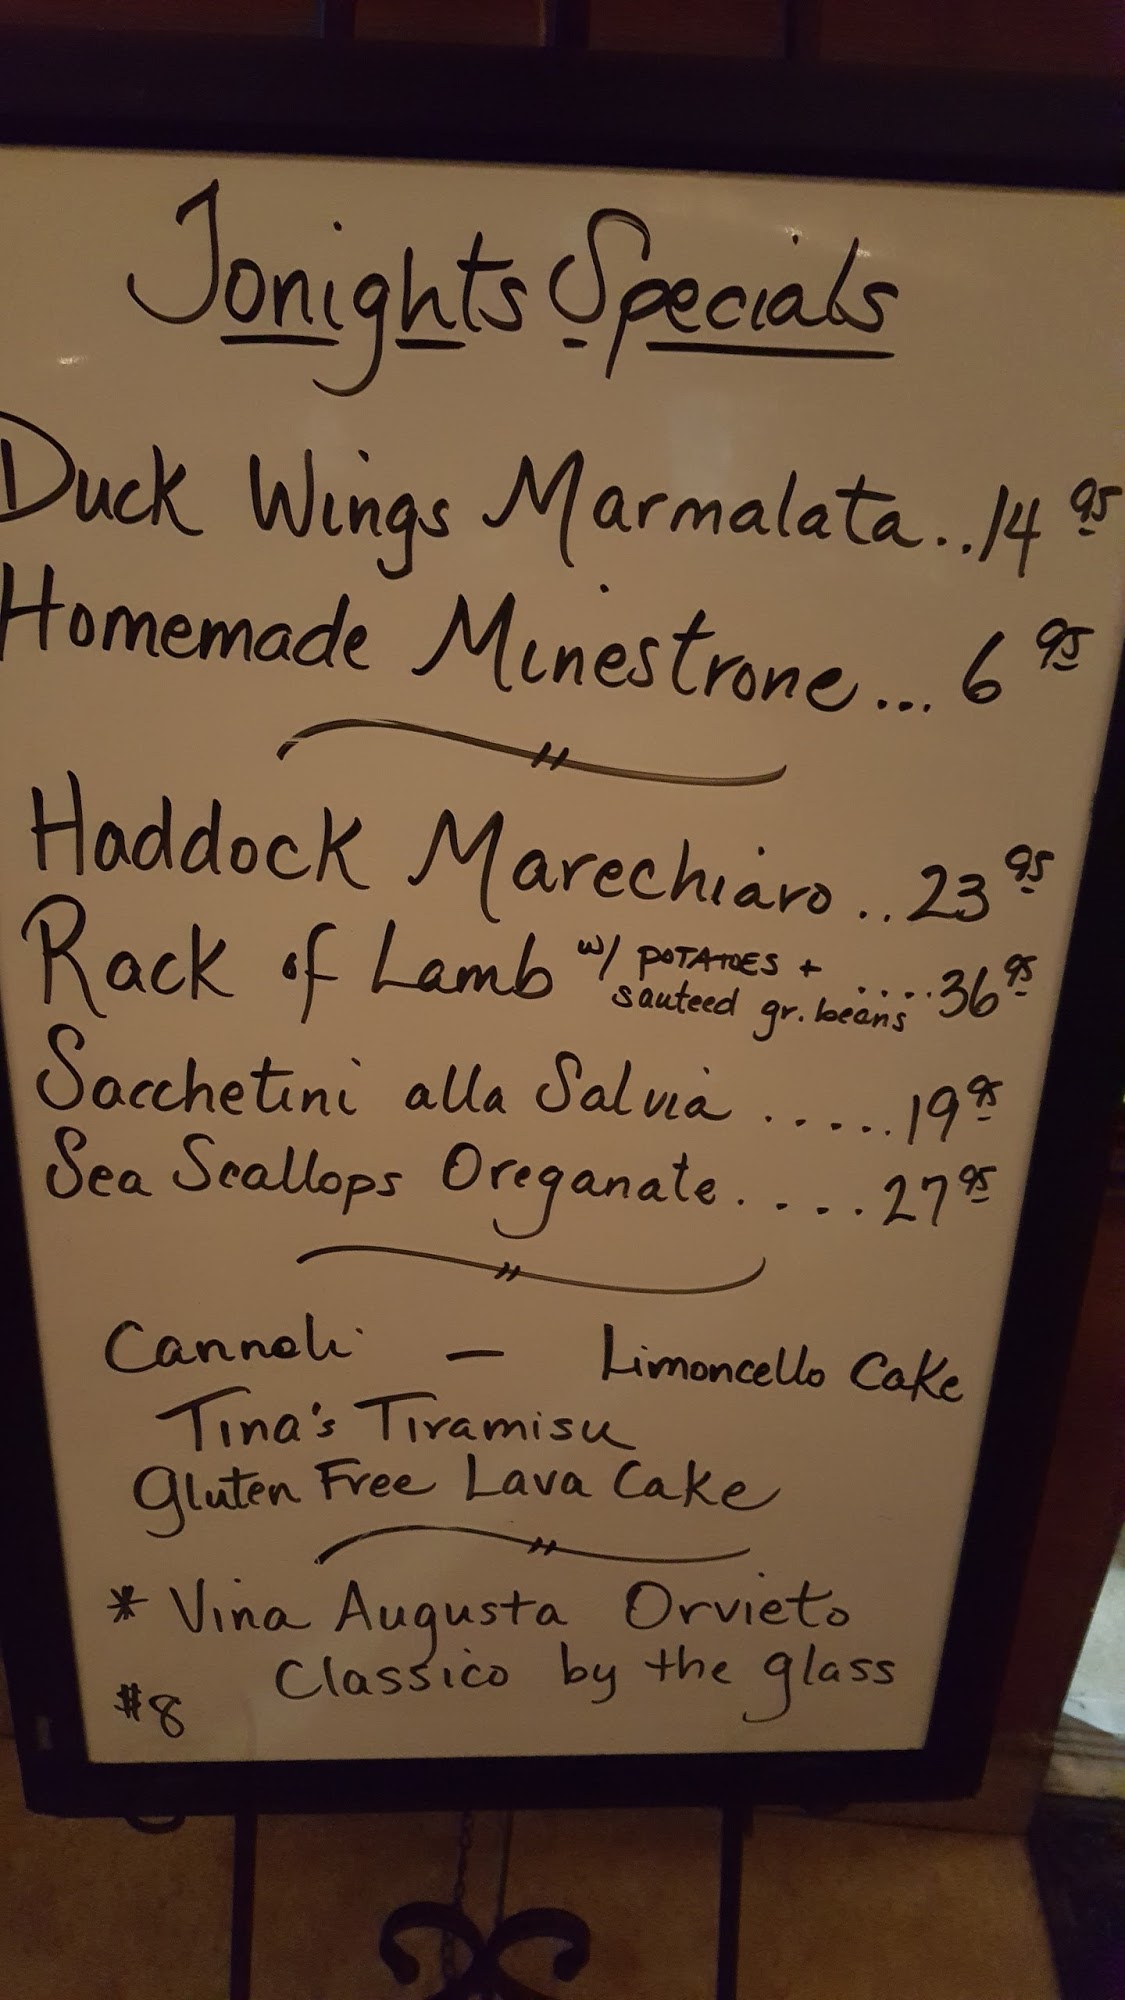 Tonights Specials
Duck Wings Marmalata..14 95
Homemade Minestrone... 6 95
Haddock Marechiaro ..23 95
Rack of Lamb w/ POTATOES + ....36 95
sauteed gr. beans
Sacchetini alla Salvia .....19 95
Sea Scallops Oreganate.....27 95
Cannoli — Limoncello Cake
Tina's Tiramisu
Gluten Free Lava Cake
* Vina Augusta Orvieto
Classico by the glass
#8